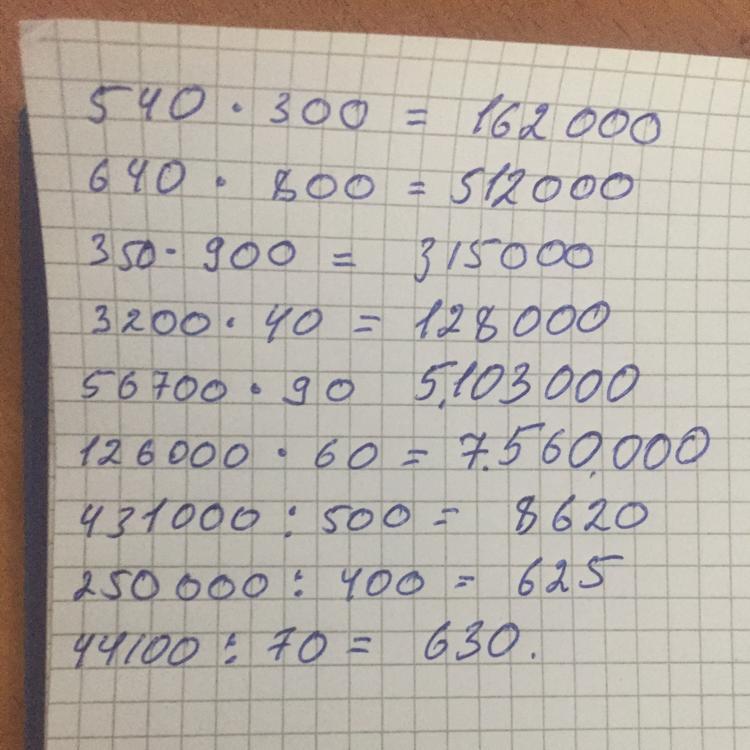 540 · 300 = 162 000
640 · 800 = 512000
350 · 900 = 315000
3200 · 40 = 128 000
56700 · 90 5,103 000
126000 · 60 = 7.560.000
431000 : 500 = 8620
250 000 : 400 = 625
44100 : 70 = 630.